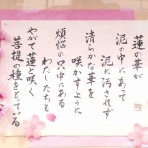 蓮の華が
泥の中にあって
泥に汚されず
清らかな華を
咲かすように
煩悩の只中にある
わたしたちも
やがて蓮と咲く
菩提の種をもている